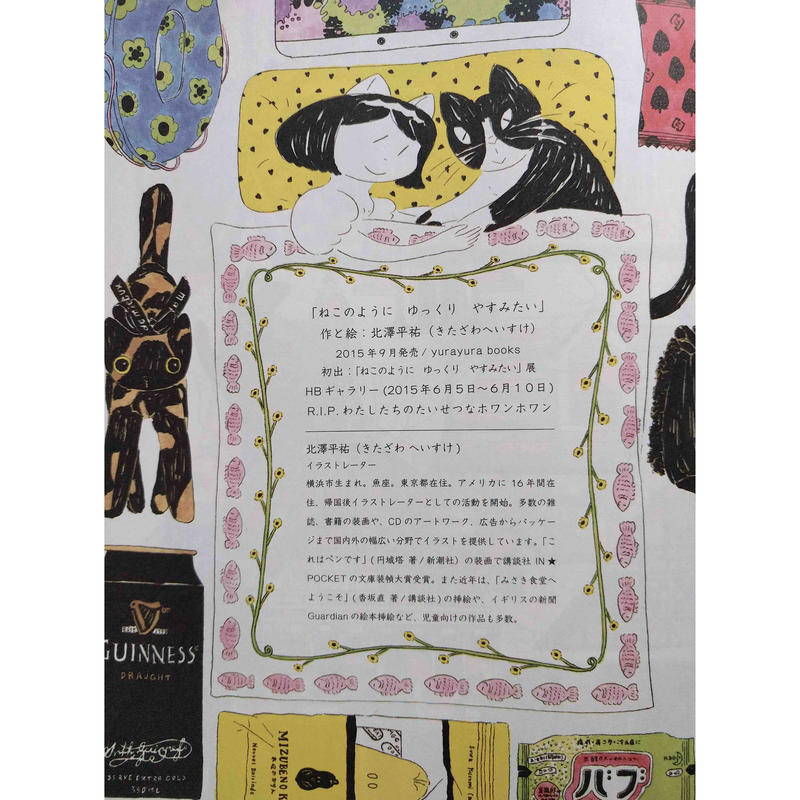 「ねこのように　ゆっくり　やすみたい」
作と絵：北澤平祐（きたざわへいすけ）
2015年9月発売 / yurayura books
初出：「ねこのように　ゆっくり　やすみたい」展
HBギャラリー（2015年6月5日〜6月10日）
R.I.P. わたしたちのたいせつなホワンホワン
北澤平祐（きたざわ へいすけ）
イラストレーター
横浜市生まれ。魚座。東京都在住。アメリカに16年間在
住、帰国後イラストレーターとしての活動を開始。多数の雑
誌、書籍の装画や、CDのアートワーク、広告からパッケー
ジまで国内外の幅広い分野でイラストを提供しています。「こ
れはペンです」（円城塔 著/新潮社）の装画で講談社 IN★
POCKETの文庫装幀大賞受賞。また近年は、「みさき食堂へ
ようこそ」（香坂直 著/講談社）の挿絵や、イギリスの新聞
Guardianの絵本挿絵など、児童向けの作品も多数。
GUINNESS
DRAUGHT
SERVE EXTRA COLD
330ML
MIZUBENO K
バブ